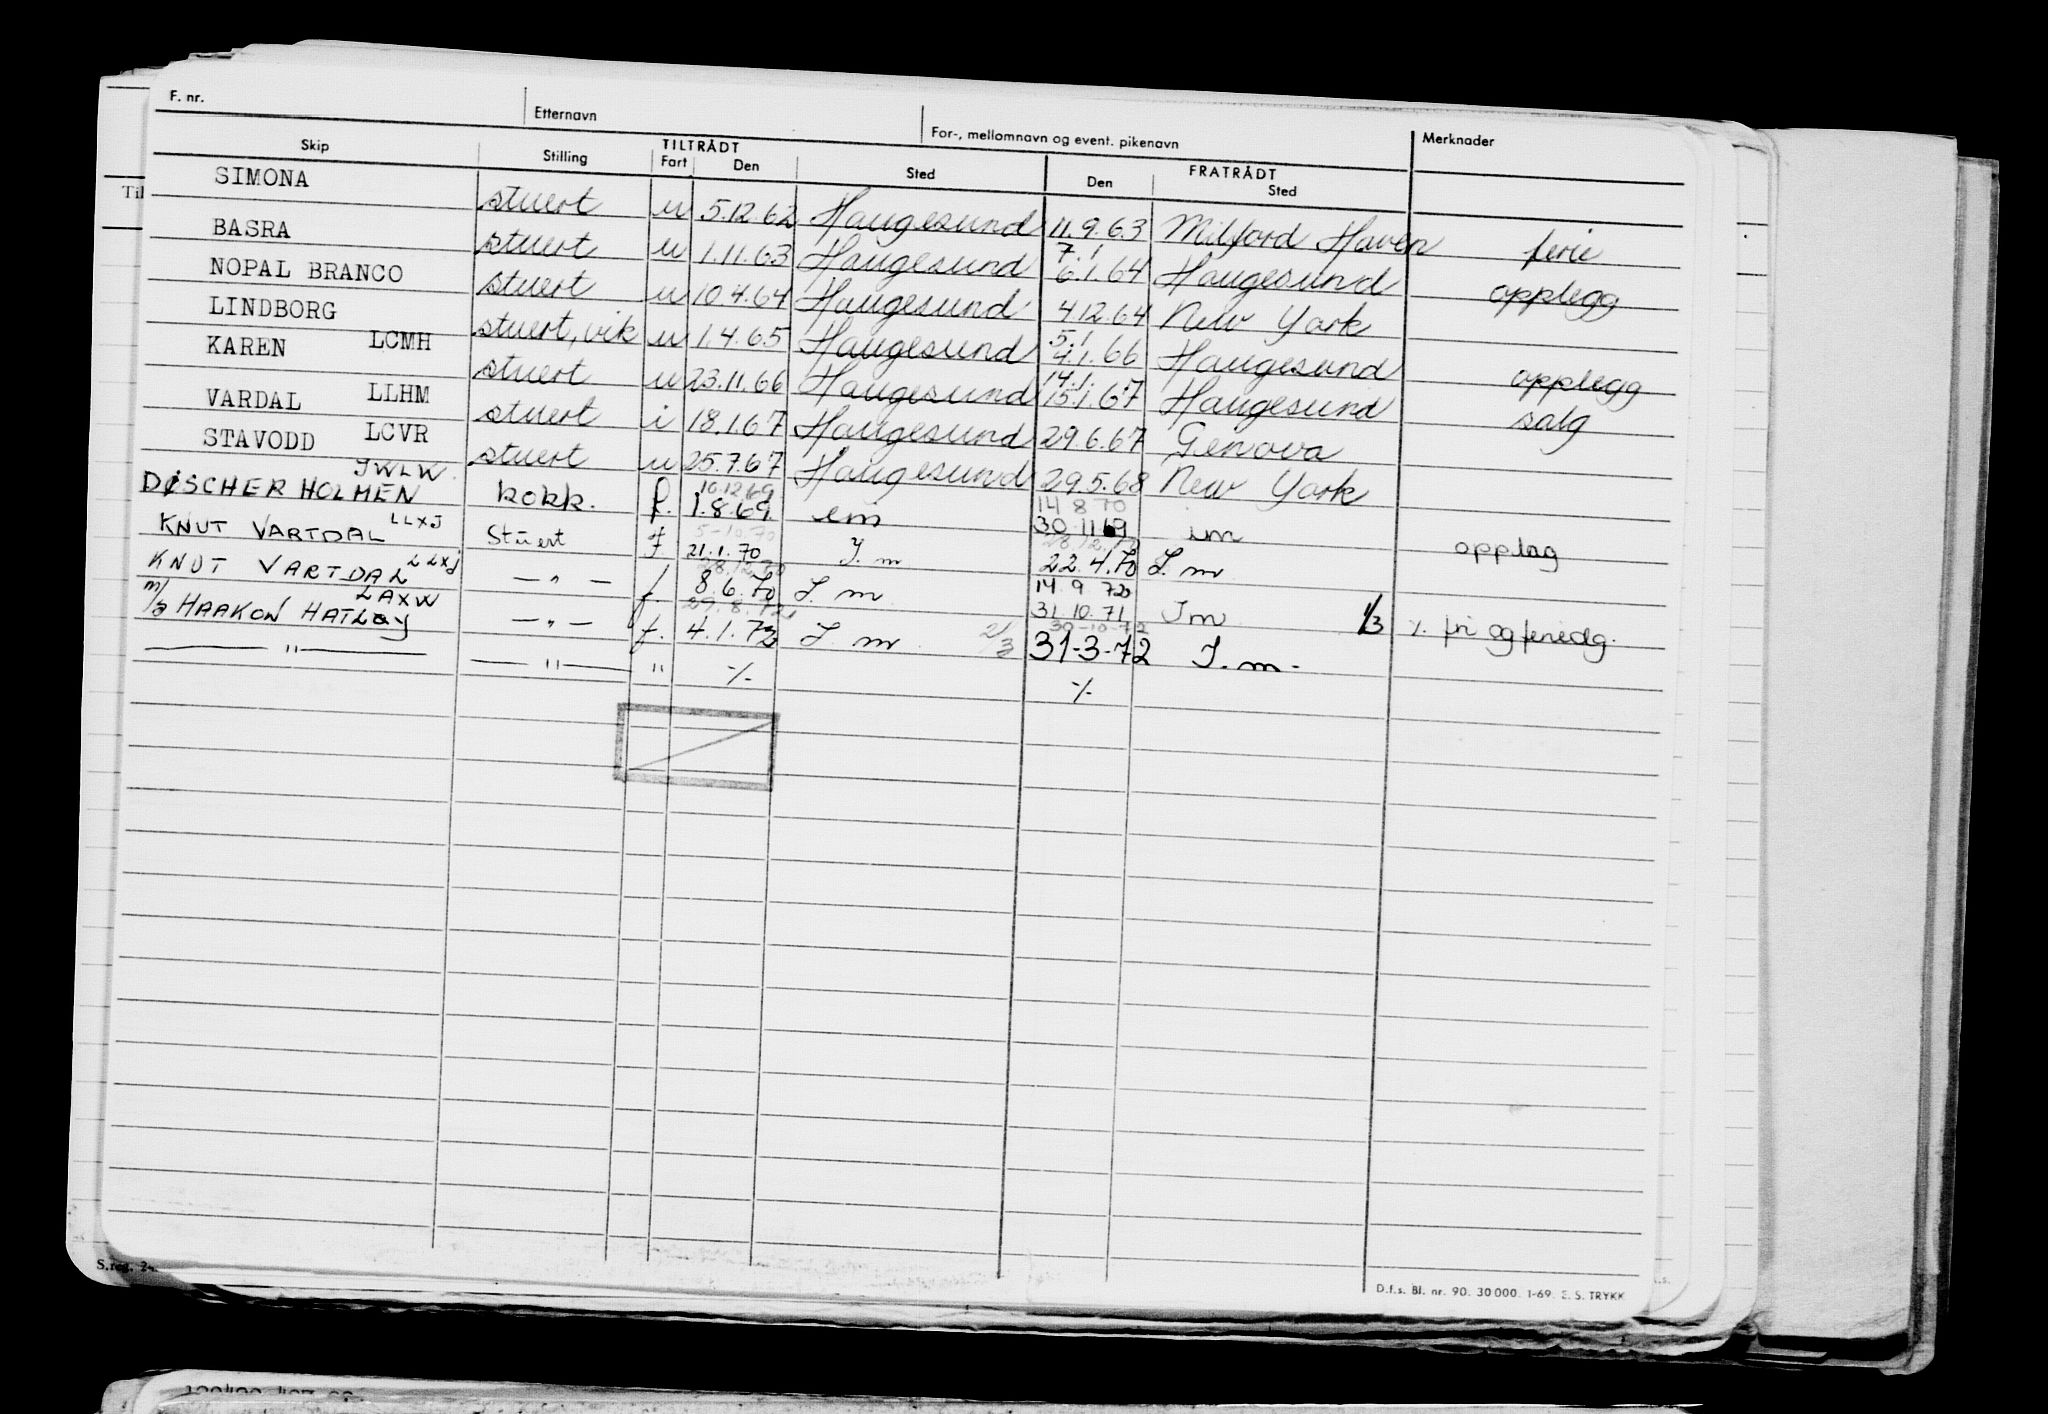 F. nr. Etternavn For-, mellomnavn og event. pikenavn Merknader
Skip Stilling TILTRÅDT Fart Den Sted FRATRÅDT Den Sted
SIMONA stuert u 5.12.62 Haugesund 11.9.63 Milford Haven ferie
BASRA stuert u 1.11.63 Haugesund 7.1 6.1.64 Haugesund opplegg
NOPAL BRANCO stuert u 10.4.64 Haugesund 4.12.64 New York
LINDBORG stuert, vik u 1.4.65 Haugesund 5.1 4.1.66 Haugesund opplegg
KAREN LCMH stuert u 23.11.66 Haugesund 14.1. 15.1.67 Haugesund salg
VARDAL LLHM stuert i 18.1.67 Haugesund 29.6.67 Genova
STAVODD LCVR stuert u 25.7.67 Haugesund 29.5.68 New York
JWLW 10.12.69 14 8 70
DØSCHER HOLMEN kokk. f. 1.8.69 im 30.11.69 im opplag
LLXJ 5-10.70
KNUT VARTDAL Stuert f. 21.1.70 I. m 22.4.70 I. m
LLXJ 28.12.70 14 9 72
KNUT VARTDAL — " — f. 8.6.70 I. m 31.10.71 Im 1/3 ٪ fri og feriedg.
LAXW 29.8.72 30-10-72
m/s HAAKON HATLØY — " — f. 4.1.72 I. m 2/3 31-3-72 I. m-
— " — — " — " ٪ ٪
Til
S.reg. 24.
D.f.s. Bl. nr. 90. 30 000. 1-69. E. S. TRYKK